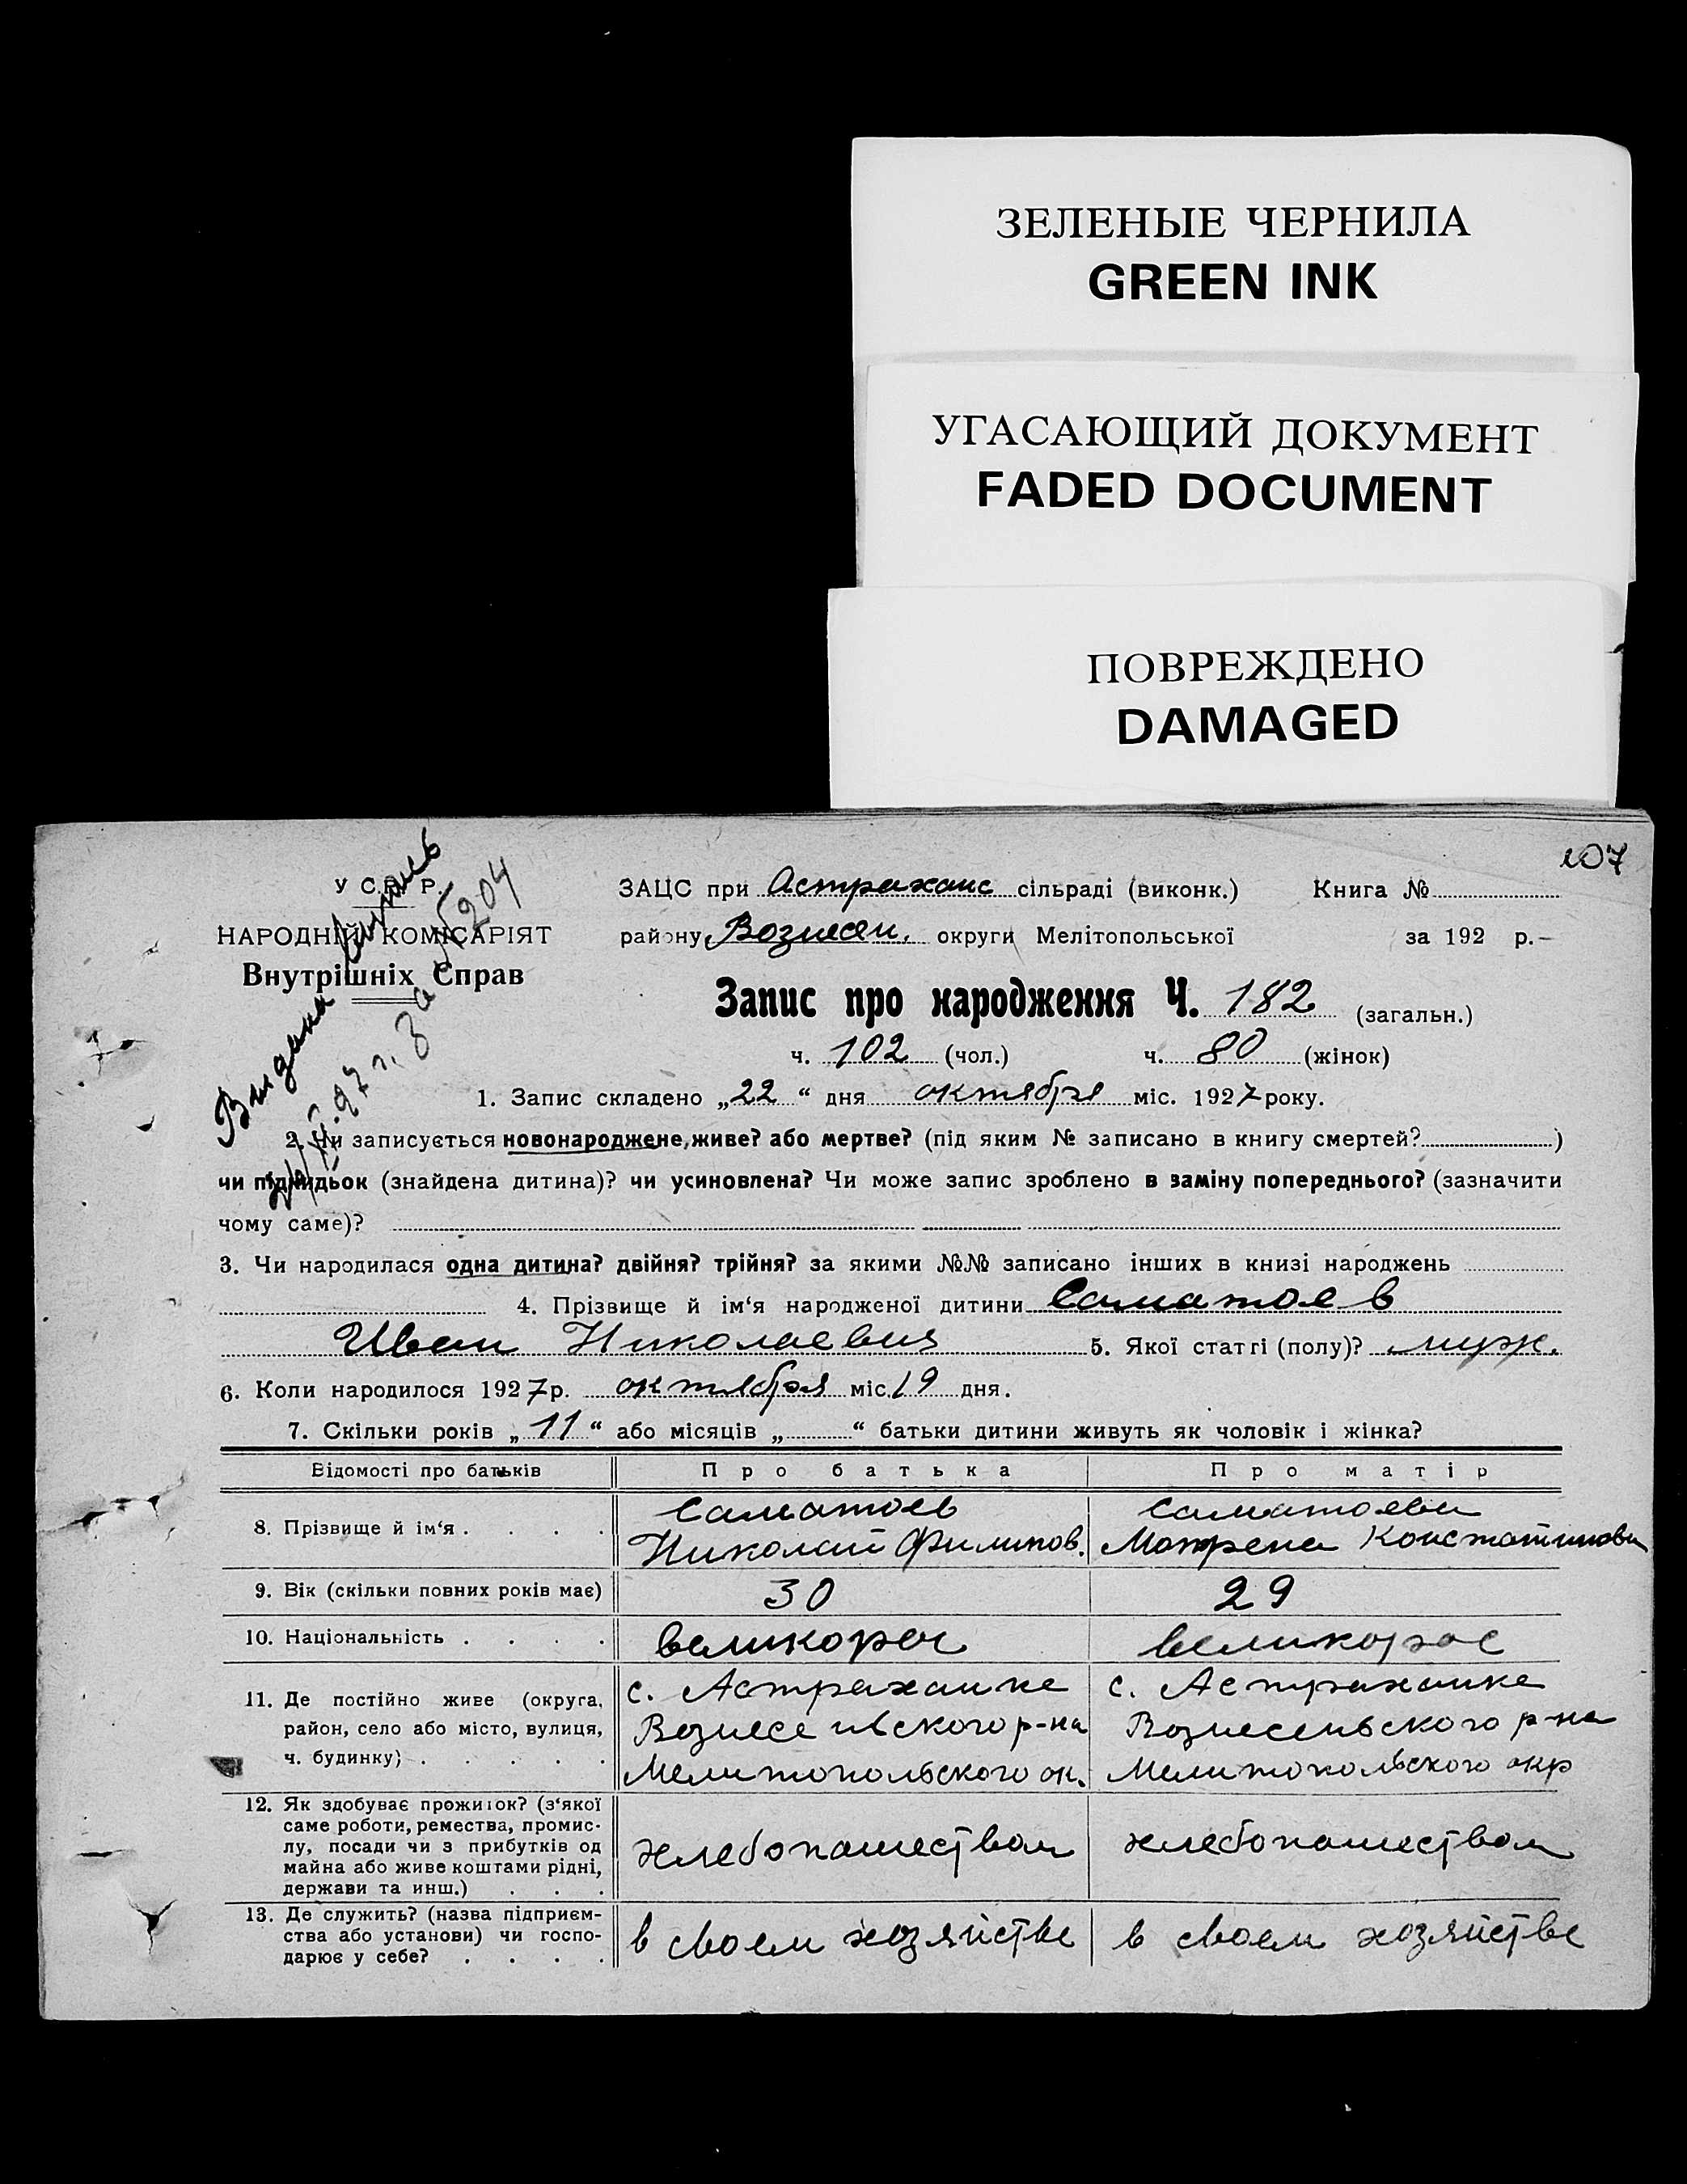 ЗЕЛЕНЫЕ ЧЕРНИЛА
GREEN INK
УГАСАЮЩИЙ ДОКУМЕНТ
FADED DOCUMENT
ПОВРЕЖДЕНО
DAMAGED
107
У С.Р.Р.
НАРОДНІЙ КОМІСАРІЯТ
Внутрішніх Справ
Видана
27 г. За № 204
ЗАЦС при Астраханс сільраді (виконк.) Книга №
району Вознесен. округи Мелітопольської за 192 р.–
Запис про народження Ч. 182 (загальн.)
ч. 102 (чол.) ч. 80 (жінок)
1. Запис складено „22“ дня октября міс. 1927 року.
2. Чи записується новонароджене, живе? або мертве? (під яким № записано в книгу смертей? )
чи підкидьок (знайдена дитина)? чи усиновлена? Чи може запис зроблено в заміну попереднього? (зазначити
чому саме)?
3. Чи народилася одна дитина? двійня? трійня? за якими №№ записано інших в книзі народжень
4. Прізвище й ім‘я народженої дитини Саматоев
Иван Николаевич 5. Якої статті (полу)? муж.
6. Коли народилося 1927 р. октября міс. 19 дня.
7. Скільки років „11“ або місяців „ “ батьки дитини живуть як чоловік і жінка?
Відомості про батьків Про батька Про матір
8. Прізвище й ім‘я . . . . Саматоев Саматоева
Николай Филипов. Мотрена Констатиновн
9. Вік (скільки повних років має) 30 29
10. Національність . . . . великорос великорос
11. Де постійно живе (округа, с. Астраханке с. Астраханке
район, село або місто, вулиця, Вознесенвского р-на Вознесенвского р-на
ч. будинку) . . . . . Мелитопольского ок. Мелитопольского окр
12. Як здобуває прожиток? (з‘якої
саме роботи, ремества, промис-
лу, посади чи з прибутків од хлебопашеством хлебопашеством
майна або живе коштами рідні,
держави та инш.) . . .
13. Де служить? (назва підприєм-
ства або установи) чи госпо- в своем хозяйстве в своем хозяйстве
дарює у себе? . . . .